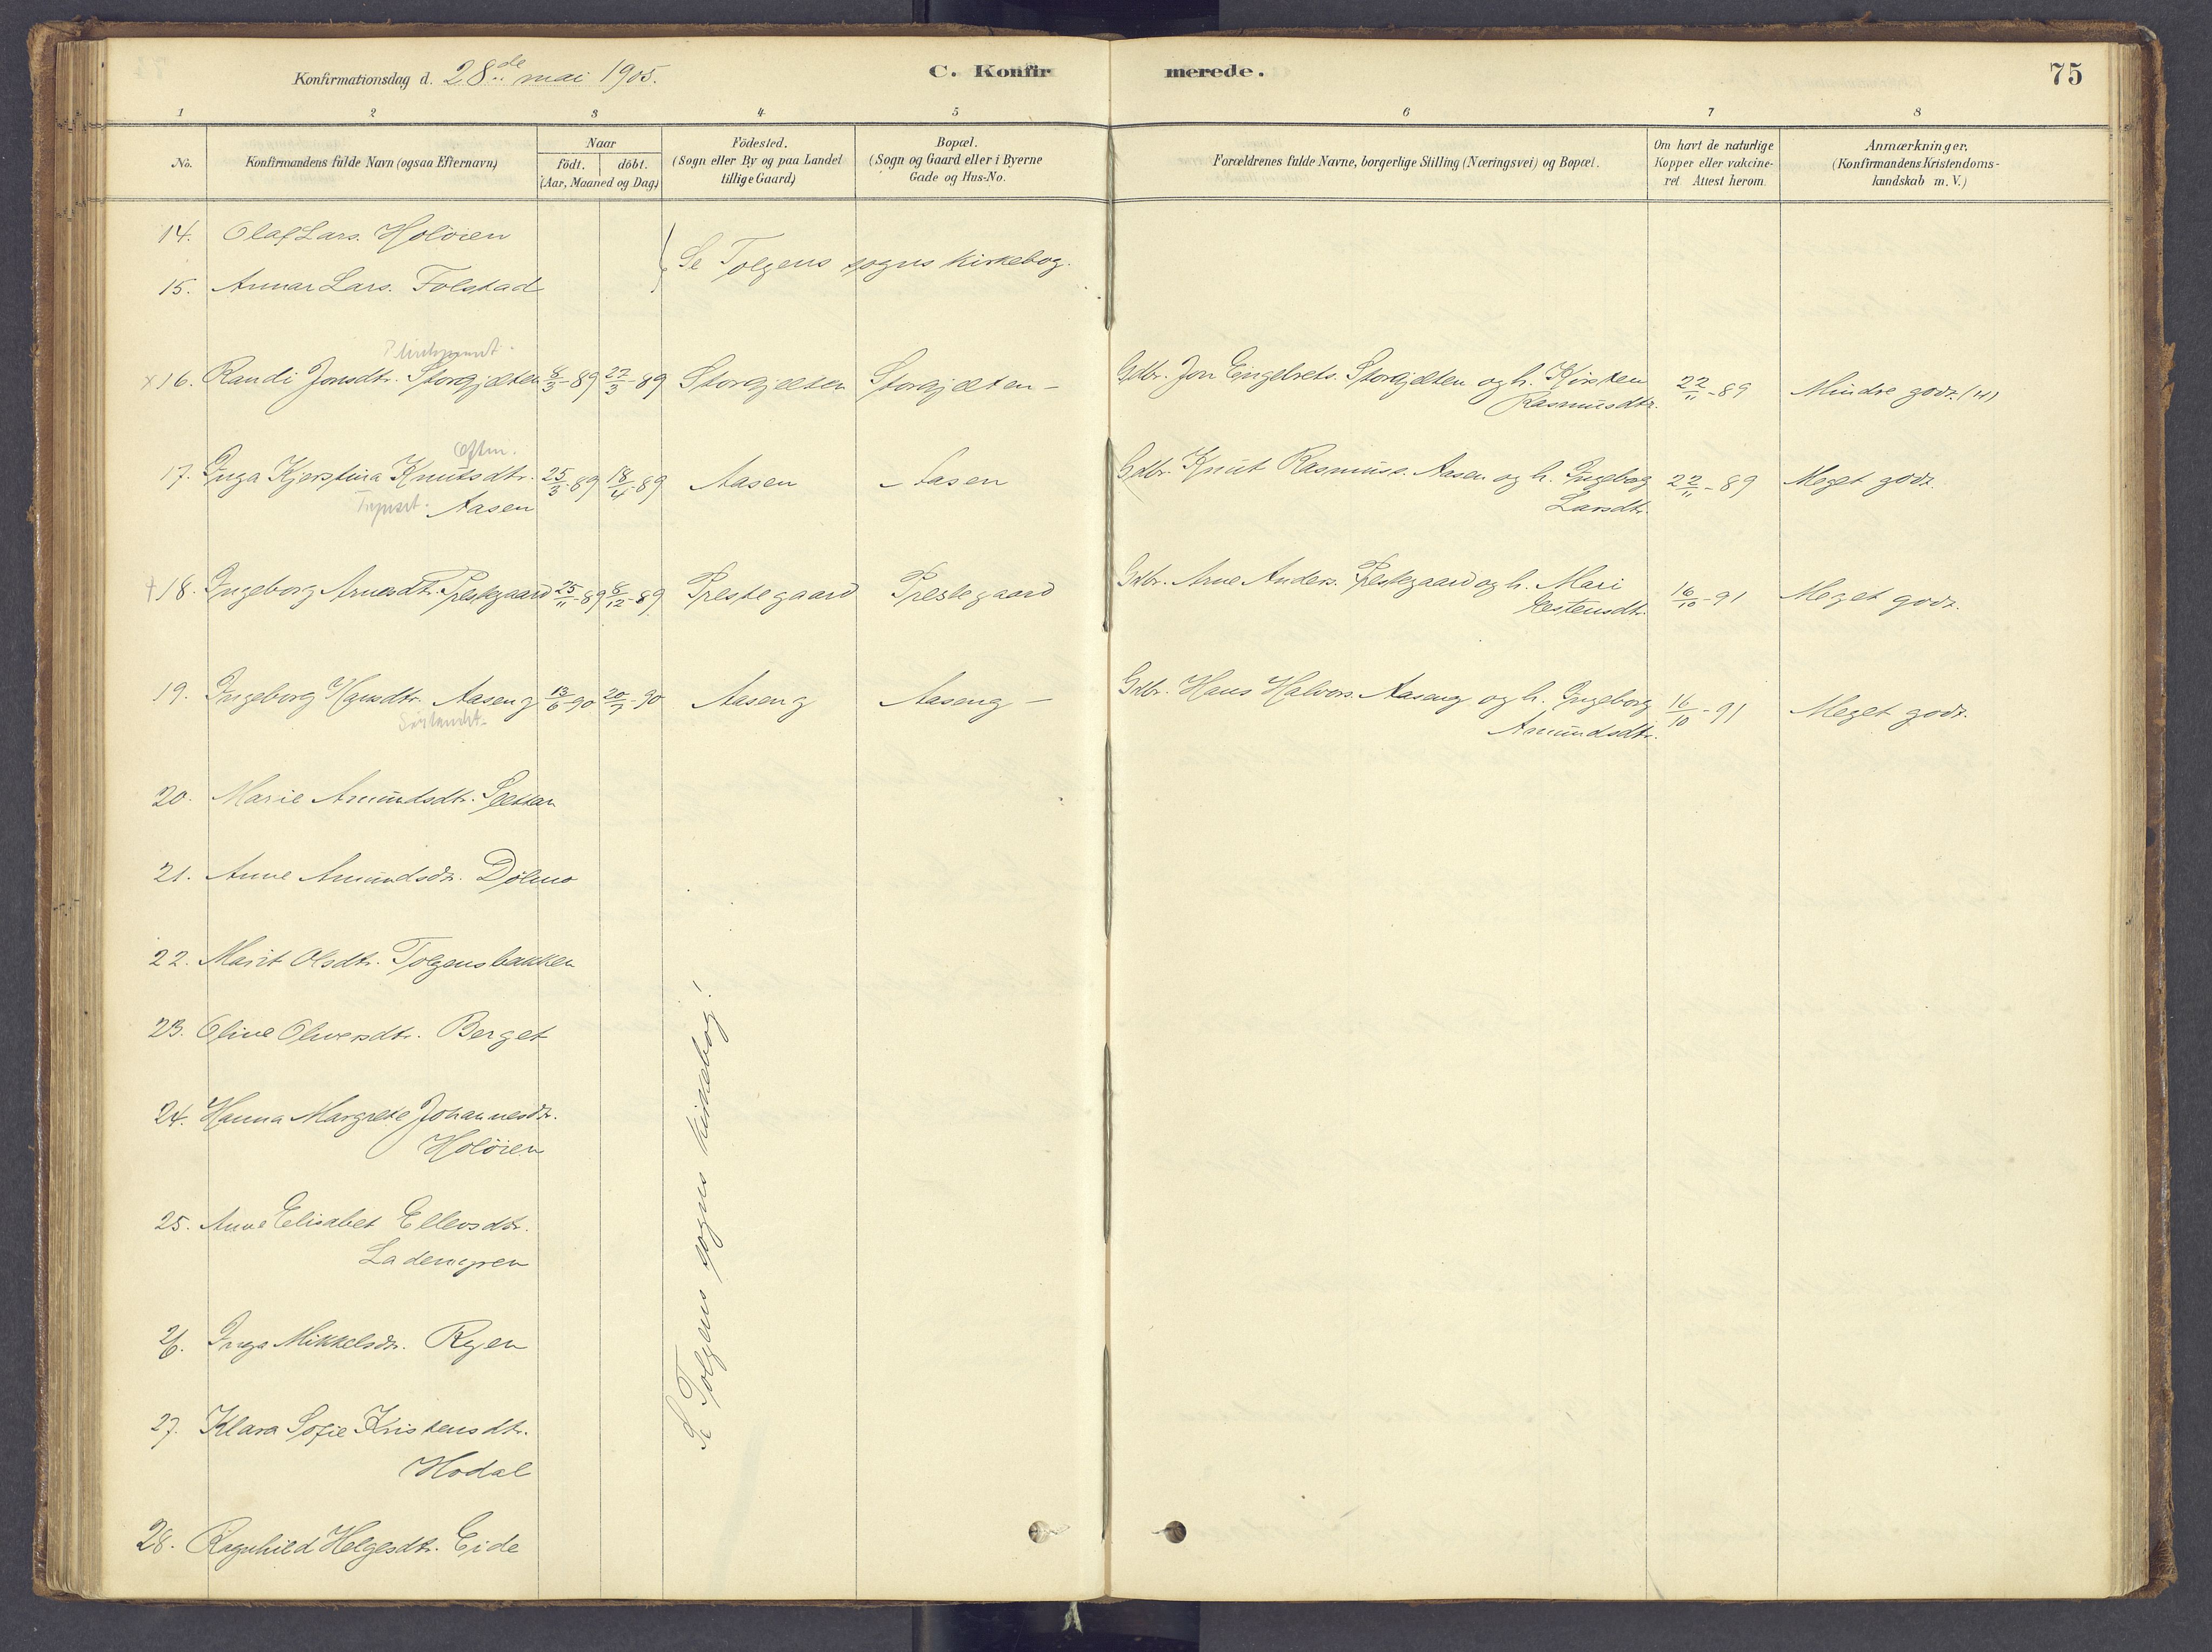 Konfirmationsdag d. 28de mai 1905.
C. Konfirmerede.
75
1 2 3 4 5 6 7 8
No.
Konfirmandens fulde Navn (ogsaa Efternavn)
Naar
födt. döbt.
(Aar, Maaned og Dag)
Födested.
(Sogn eller By og paa Landet
tillige Gaard)
Bopæl.
(Sogn og Gaard eller i Byerne
Gade og Hus-No.
Forældrenes fulde Navne, borgerlige Stilling (Næringsvei) og Bopæl.
Om havt de naturlige
Kopper eller vakcine-
ret. Attest herom.
Anmærkninger.
(Konfirmandens Kristendoms-
kundskab m. V.)
14. Olaf Lars. Holöien
Se Tolgens sogns kirkebog.
15. Annar Lars. Folstad
x 16. Randi Jonsdtr. Storgjelten 8/3-89 27/3-89 Storgjelten Storgjelten- Gdbr. Jon Engebrets. Storgjelten og h. Kirsten
Rasmusdtr. 22/11-89 Mindre godt. (H)
17. Inga Kjerstina Knutsdtr. 25/3-89 18/4-89 Aasen Aasen Gdbr. Knut Rasmuss. Aasen og h. Ingeborg
Aasen Larsdtr. 22/11-89 Meget godt.
18. Ingeborg Arnesdtr. Prestegaard 25/11-89 8/12-89 Prestegaard Prestegaard Gdbr. Arne Anders. Prestegaard og h. Mari
Estensdtr. 16/10-91 Meget godt.
19. Ingeborg Hansdtr. Aaseng 13/6-90 20/7-90 Aaseng Aaseng- Gdbr. Hans Halvors. Aaseng og h. Ingeborg
Amundsdtr. 16/10-91 Meget godt.
20. Marie Amundsdtr.
21. Anne Amundsdr. Dölmo
22. Marit Olsdtr. Tolgensbakken
23. Olive Oluersdtr. Berget
24. Hanna Margrete Johannesdr.
Holöien
25. Anne Elisabet Ellevsdtr.
Ladengren
26. Inga Mikkelsdr. Ryen
27. Klara Sofie Kristensdtr.
Hodal
28. Ragnhild Helgesdtr. Eide
Se Tolgens sogns kirkebog!